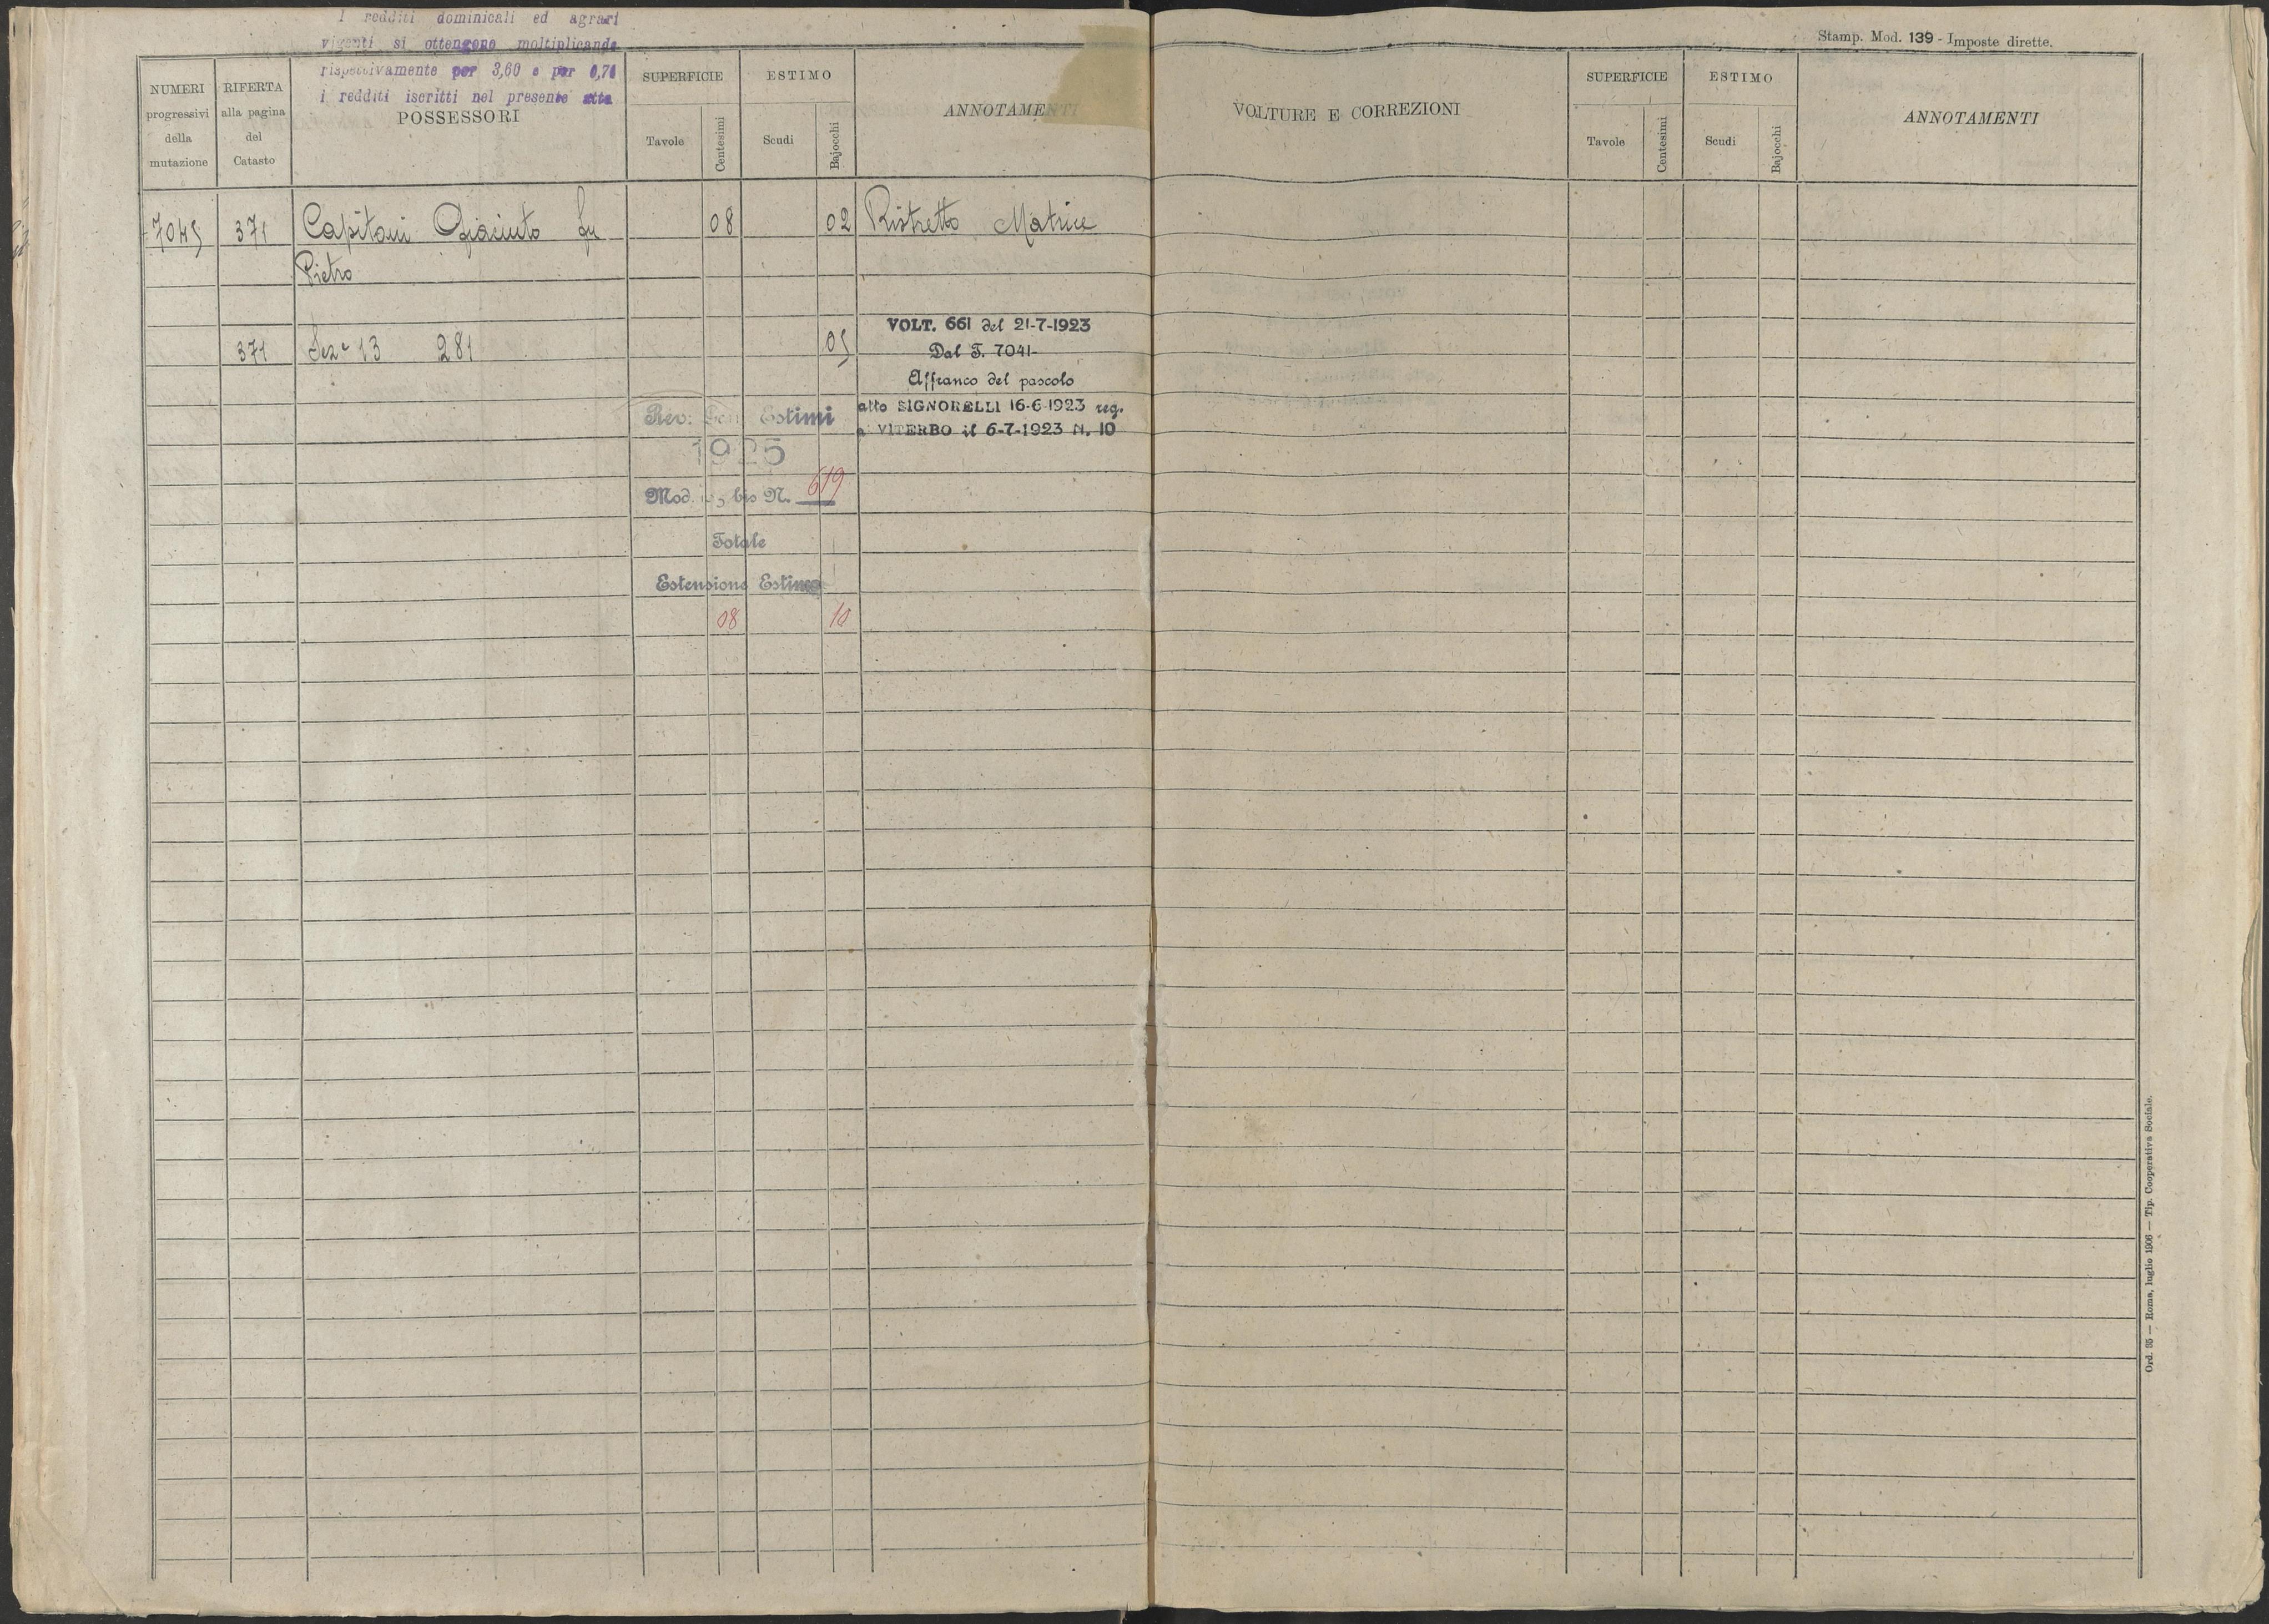 I redditi dominicali ed agrari
vigenti si ottengono moltiplicando
rispettivamente per 3,60 e per 0,70
i redditi iscritti nel presente atto
Stamp. Mod. 139 - Imposte dirette.
NUMERI progressivi della mutazione
RIFERTA alla pagina del Catasto
POSSESSORI
SUPERFICIE
Tavole
Centesimi
ESTIMO
Scudi
Bajocchi
ANNOTAMENTI
VOLTURE E CORREZIONI
SUPERFICIE
Tavole
Centesimi
ESTIMO
Scudi
Bajocchi
ANNOTAMENTI
7045 371 Capitani Giacinto fu 08 02 Ristretto Matrice
Pietro
VOLT. 661 del 21-7-1923
371 Seze 13 281 05 Dal T. 7041
Affranco del pascolo
Rev: Gen Estimi atto SIGNORELLI 16-6-1923 reg.
a VITERBO il 6-7-1923 N. 10
1925
Mod. bis N. 619
Totale
Estensione Estimo
08 10
Ord. 35 — Roma, luglio 1906 — Tip. Cooperativa Sociale.